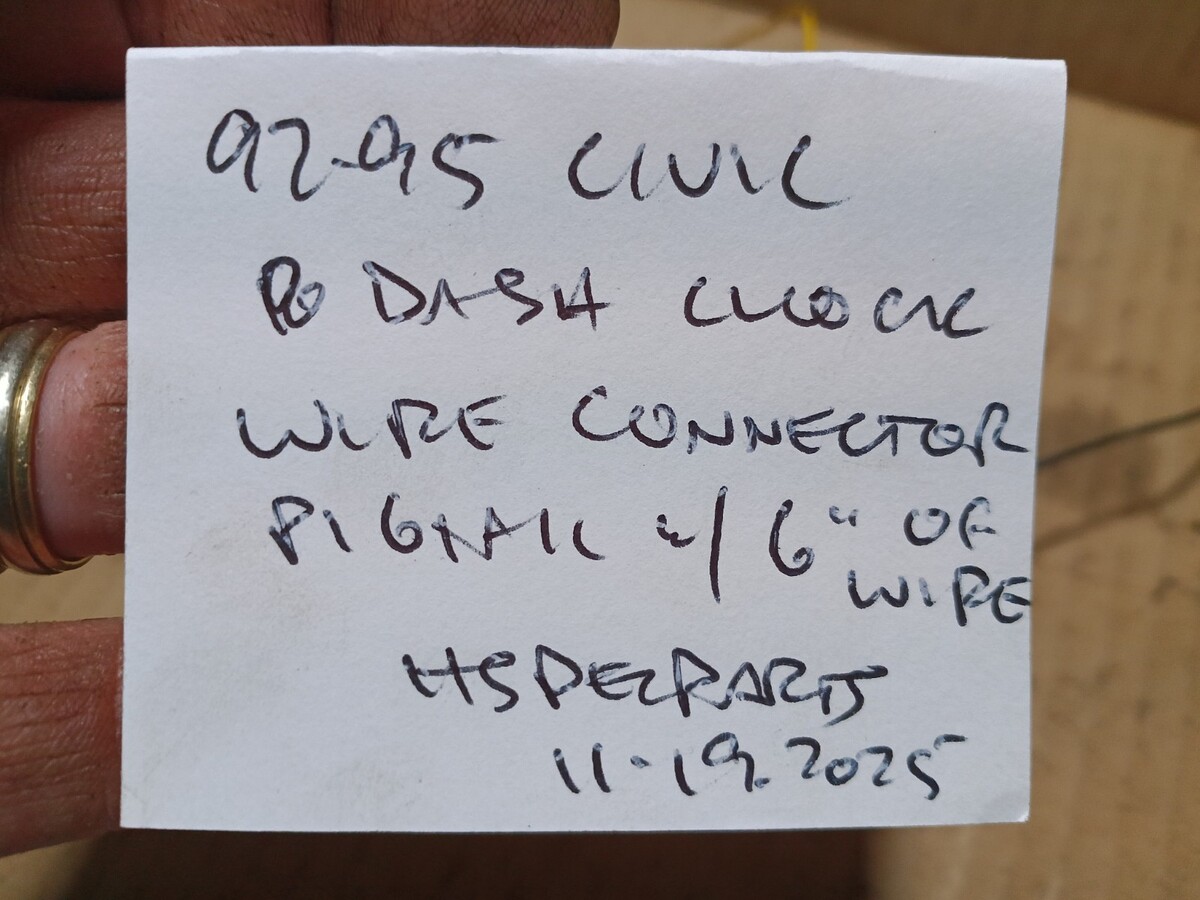 92-95 CIVIC
Po DASH CLOCK
WIRE CONNECTOR
PIGTAIL w/ 6" OF
WIRE
HSPECPARTS
11-19.2025